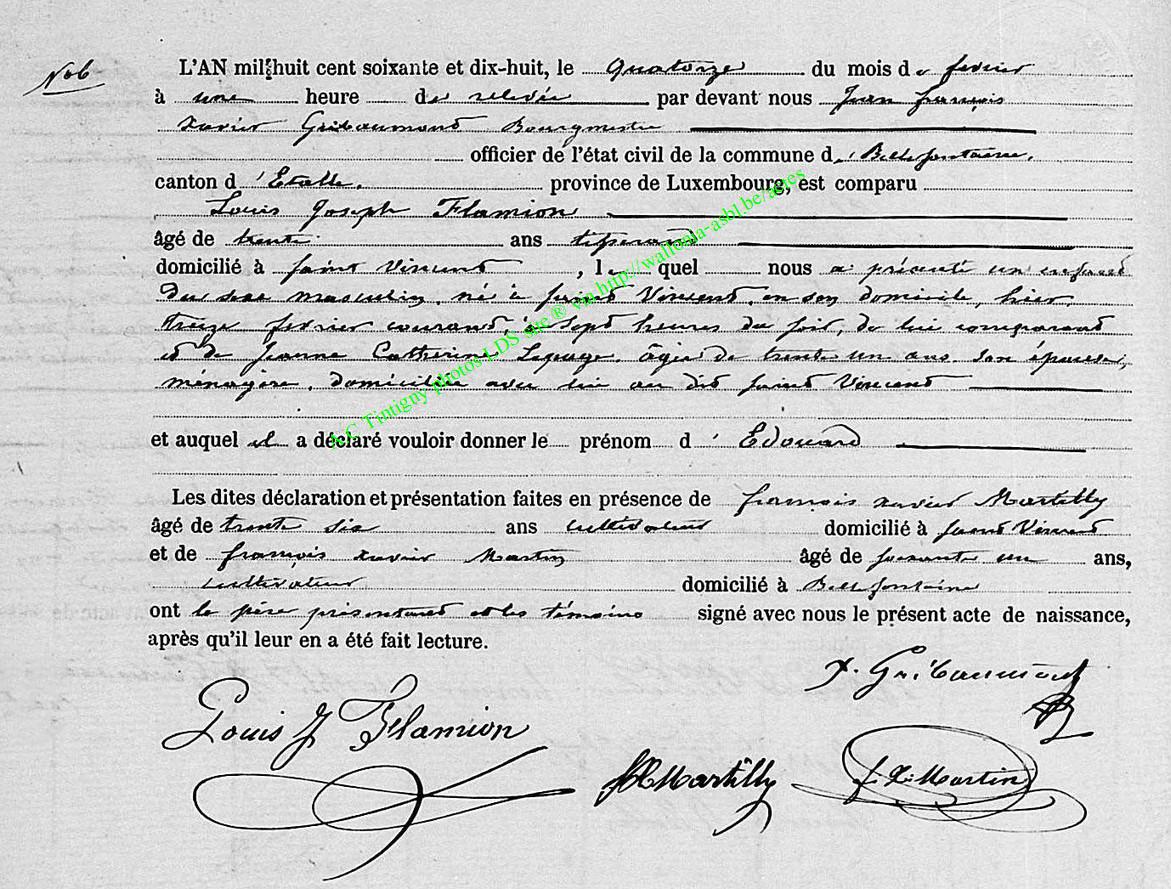 No 6
L'AN mil huit cent soixante et dix-huit, le Quatorze du mois de fevrier
à une heure de relevée par devant nous Jean françois
Xavier Gribaumont Bourgmestre
officier de l'état civil de la commune de Bellefontaine,
canton d'Etalle, province de Luxembourg, est comparu
Louis Joseph Flamion
âgé de trente ans tisserand
domicilié à Saint Vincent, lequel nous a présenté un enfant
du sexe masculin, né à Saint Vincent, en son domicile, hier
treize fevrier courant, à sept heures du soir, de lui comparant
et de Jeanne Catherine Lepage, âgée de trente un ans, son épouse,
ménagère, domiciliée avec lui au dit Saint Vincent
et auquel il a déclaré vouloir donner le prénom d'Edouard
Les dites déclaration et présentation faites en présence de françois xavier Martilly
âgé de trente six ans cultivateur domicilié à Saint Vincent
et de françois xavier Martin âgé de soixante un ans,
cultivateur domicilié à Bellefontaine
ont le père présentant et les témoins signé avec nous le présent acte de naissance,
après qu'il leur en a été fait lecture.
X. Gribaumont
Louis J Flamion
fX Martilly
f. X. Martin
A.C Tintigny photos LDS site ® via http://wallonia-asbl.be/actes